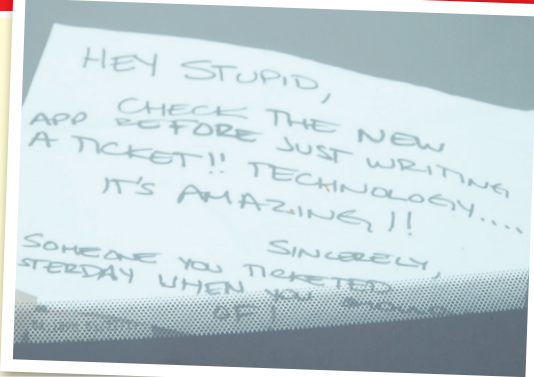 HEY STUPID,
CHECK THE NEW
APP BEFORE JUST WRITING
A TICKET!! TECHNOLOGY....
IT'S AMAZING!!
SINCERELY,
SOMEONE YOU TICKETED
STERDAY WHEN YOU
OF!